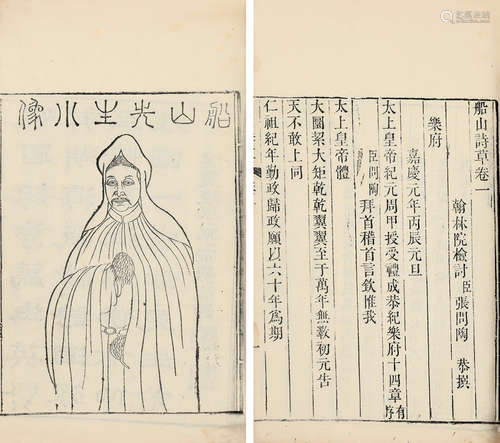 船山先生小像
船山詩草卷一
翰林院檢討臣張問陶 恭撰
樂府
嘉慶元年丙辰元旦
太上皇帝紀元周甲授受禮成恭紀樂府十四章有序
臣問陶拜首稽首言欽惟我
太上皇帝體
大圜絜大矩乾乾翼翼至于萬年無斁初元告
天不敢上同
仁祖紀年勤政歸政願以六十年為期